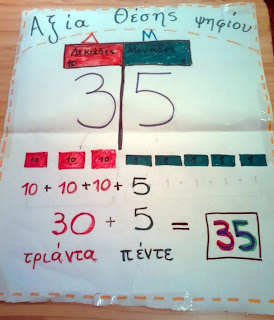 Αξία Θέσης ψηφίου
Δ Μ
Δεκάδες Μονάδες
10
3 5
10 10 10
10 + 10 + 10 + 5
30 + 5 = 35
τριάντα πέντε